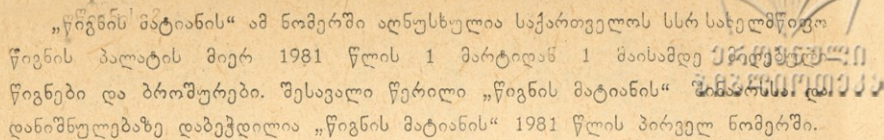 „წიგნის მატიანის“ ამ ნომერში აღნუსხულია საქართველოს სსრ სახელმწიფო
წიგნის პალატის მიერ 1981 წლის 1 მარტიდან 1 მაისამდე მიღებული
წიგნები და ბროშურები. შესავალი წერილი „წიგნის მატიანის“ შინაარსსა და
დანიშნულებაზე დაბეჭდილია „წიგნის მატიანის“ 1981 წლის პირველ ნომერში.
ეროვნული
ბიბლიოთეკა